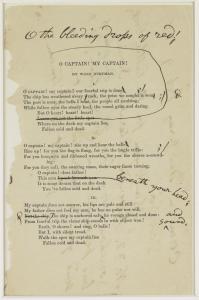 O the bleeding drops of red!
O CAPTAIN! MY CAPTAIN!
BY WALT WHITMAN.
I.
O CAPTAIN! my captain! our fearful trip is done
The ship has weathered every the prize we sought is won
The port is near, the bells I hear, the people all exulting,
While follow eyes the steady keel, the vessel grim and daring
But O heart! heart! heart!
Leave you not the little spot
Where on the deck my captain lies,
Fallen cold and dead.
II.
O captain! my captain! rise up and hear the bells
Rise up! for you the flag is flung, for you the bugle trills
For you bouquets and ribboned wreaths, for you the shores a-crowd-
ing:
For you they call, the swaying mass, their eager faces turning.
O captain! dear father!
This arm
beneath your head;
It is some dream that on the deck
You 've fallen cold and dead.
III.
My captain does not answer, his lips are pale and still
My father does not feel my arm, he has no pulse nor will.
The ship is anchored safe, its voyage closed and done
and
sound,
From fearful trip the victor ship comes in with object won!
Exult, O shores! and ring, O bells!
But I, with silent tread,
Walk the spot my captain lies
Fallen cold and dead.